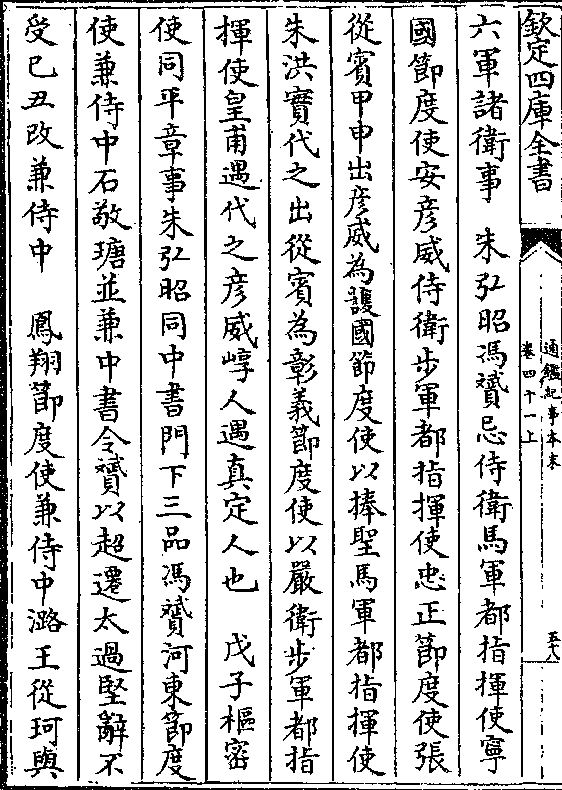 欽定四庫全書
通鑑紀事本末
卷四十一上
五十八
六軍諸衛事　朱弘昭馮贇忌侍衛馬軍都指揮使寧
國節度使安彥威侍衛步軍都指揮使忠正節度使張
從賓甲申出彥威為護國節度使以捧聖馬軍都指揮使
朱洪實代之出從賓為彰義節度使以嚴衛步軍都指
揮使皇甫遇代之彥威崞人遇真定人也　戊子樞密
使同平章事朱弘昭同中書門下三品馮贇河東節度
使兼侍中石敬瑭並兼中書令贇以超遷太過堅辭不
受己丑改兼侍中　鳳翔節度使兼侍中潞王從珂與